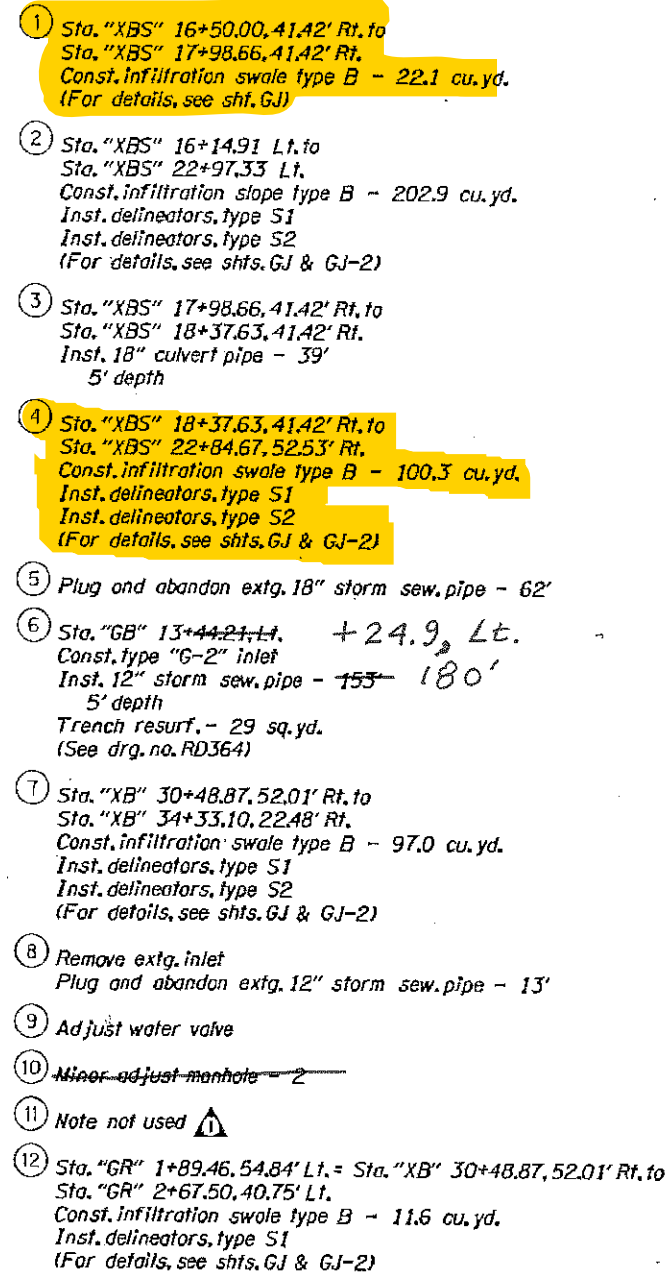 1 Sta. "XBS" 16+50.00, 41.42' Rt. to
Sta. "XBS" 17+98.66, 41.42' Rt.
Const. infiltration swale type B - 22.1 cu. yd.
(For details, see sht. GJ)
2 Sta. "XBS" 16+14.91 Lt. to
Sta. "XBS" 22+97.33 Lt.
Const. infiltration slope type B - 202.9 cu. yd.
Inst. delineators, type S1
Inst. delineators, type S2
(For details, see shts. GJ & GJ-2)
3 Sta. "XBS" 17+98.66, 41.42' Rt. to
Sta. "XBS" 18+37.63, 41.42' Rt.
Inst. 18" culvert pipe - 39'
5' depth
4 Sta. "XBS" 18+37.63, 41.42' Rt. to
Sta. "XBS" 22+84.67, 52.53' Rt.
Const. infiltration swale type B - 100.3 cu. yd.
Inst. delineators, type S1
Inst. delineators, type S2
(For details, see shts. GJ & GJ-2)
5 Plug and abandon extg. 18" storm sew. pipe - 62'
6 Sta. "GB" 13+44.21, Lt. +24.9, Lt.
Const. type "G-2" inlet
Inst. 12" storm sew. pipe - 153' 180'
5' depth
Trench resurf. - 29 sq. yd.
(See drg. no. RD364)
7 Sta. "XB" 30+48.87, 52.01' Rt. to
Sta. "XB" 34+33.10, 22.48' Rt.
Const. infiltration swale type B - 97.0 cu. yd.
Inst. delineators, type S1
Inst. delineators, type S2
(For details, see shts. GJ & GJ-2)
8 Remove extg. inlet
Plug and abandon extg. 12" storm sew. pipe - 13'
9 Adjust water valve
10 Minor adjust manhole - 2
11 Note not used 1
12 Sta. "GR" 1+89.46, 54.84' Lt. = Sta. "XB" 30+48.87, 52.01' Rt. to
Sta. "GR" 2+67.50, 40.75' Lt.
Const. infiltration swale type B - 11.6 cu. yd.
Inst. delineators, type S1
(For details, see shts. GJ & GJ-2)